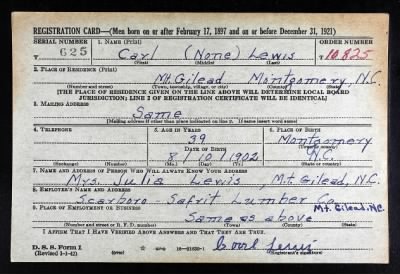 REGISTRATION CARD—(Men born on or after February 17, 1897 and on or before December 31, 1921)
SERIAL NUMBER 1. NAME (Print) ORDER NUMBER
U 625 Carl (None) Lewis T 10825
(First) (Middle) (Last)
2. PLACE OF RESIDENCE (Print)
Mt. Gilead Montgomery, N.C.
(Number and street) (Town, township, village, or city) (County) (State)
[THE PLACE OF RESIDENCE GIVEN ON THE LINE ABOVE WILL DETERMINE LOCAL BOARD
JURISDICTION; LINE 2 OF REGISTRATION CERTIFICATE WILL BE IDENTICAL]
3. MAILING ADDRESS
Same
[Mailing address if other than place indicated on line 2. If same insert word same]
4. TELEPHONE 5. AGE IN YEARS 6. PLACE OF BIRTH
39 Montgomery
DATE OF BIRTH (Town or county)
8 / 10 / 1902 N.C.
(Exchange) (Number) (Mo.) (Day) (Yr.) (State or country)
7. NAME AND ADDRESS OF PERSON WHO WILL ALWAYS KNOW YOUR ADDRESS
Mrs. Julia Lewis, Mt. Gilead, N.C.
8. EMPLOYER'S NAME AND ADDRESS
Scarboro Safrit Lumber Co. Mt. Gilead, N.C.
9. PLACE OF EMPLOYMENT OR BUSINESS
Same as above
(Number and street or R. F. D. number) (Town) (County) (State)
I AFFIRM THAT I HAVE VERIFIED ABOVE ANSWERS AND THAT THEY ARE TRUE.
D. S. S. Form 1
(Revised 1-1-42) (over) 16—21630-1 Carl Lewis
(Registrant's signature)